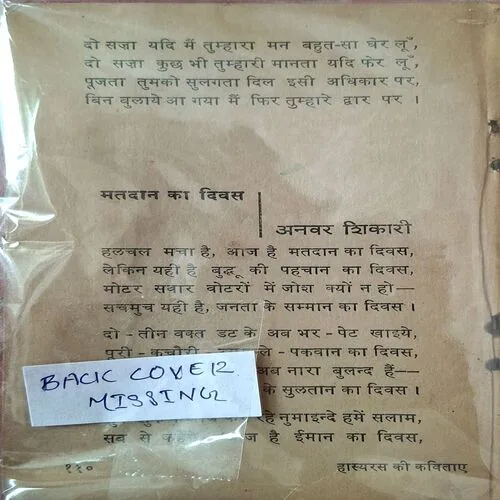 दो सज़ा यदि मैं तुम्हारा मन बहुत-सा घेर लूँ,
दो सज़ा कुछ भी तुम्हारी मानता यदि फेर लूँ,
पूजता तुमको सुलगता दिल इसी अधिकार पर,
बिन बुलाये आ गया मैं फिर तुम्हारे द्वार पर ।
मतदान का दिवस
अनवर शिकारी
हलचल मचा है, आज है मतदान का दिवस,
लेकिन यही है बुद्धू की पहचान का दिवस,
मोटर सवार वोटरों में जोश क्यों न हो—
सचमुच यही है, जनता के सम्मान का दिवस ।
दो - तीन वक्त डट के अब भर - पेट खाइये,
पूरी - कचौरी पकवान का दिवस,
अब नारा बुलन्द हैं—
के सुलतान का दिवस ।
BACK COVER
MISSING
रहे नुमाइन्दे हमें सलाम,
सब से है ईमान का दिवस,
११०
हास्यरस की कविताए